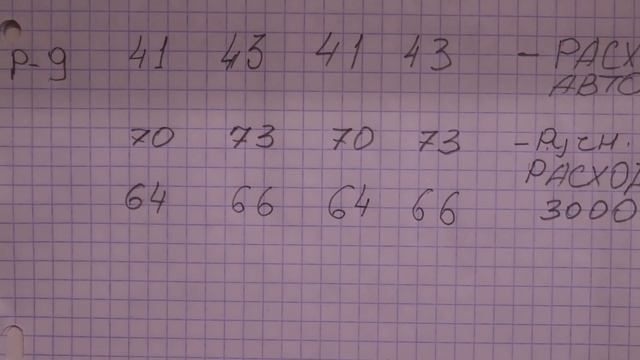 р-д 41 43 41 43 - РАСХ
АВТО
70 73 70 73 - Ручн.
РАСХОД
64 66 64 66 3000